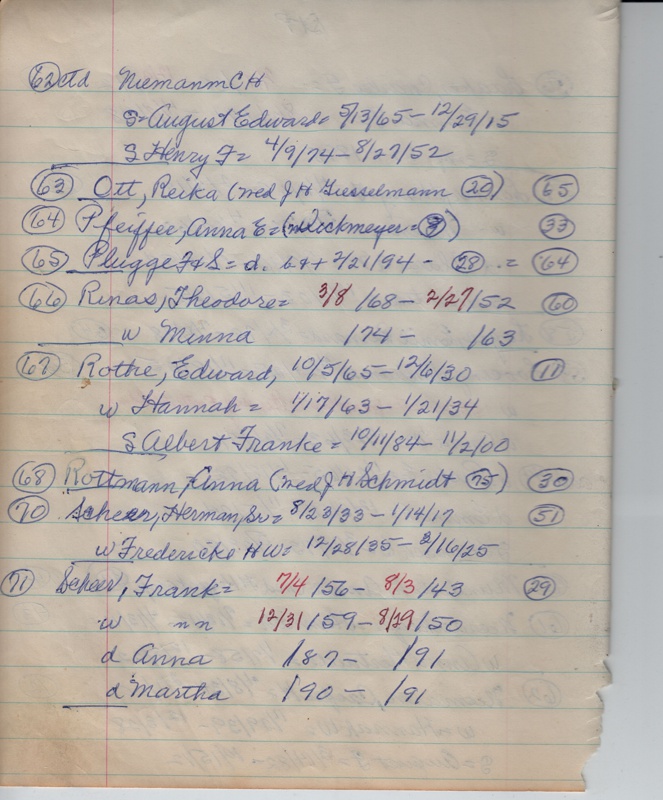 (62) ctd Niemann C H
S = August Edward = 5/13/65 - 12/29/15
S Henry F = 4/9/74 - 8/27/52
(63) Ott, Reika (med J H Giesselmann (20) (65)
(64) Pfeiffee, Anna E = ( Dickmeyer = (7)) (33)
(65) Plugge F & S = d. b & + 7/21/94 - (28) . = (64)
(66) Rinas, Theodore = 3/8/68 - 2/27/52 (60)
w Minna /74 - /63
(67) Rothe, Edward, 10/5/65 - 12/6/30 (11)
w Hannah = 1/17/63 - 1/21/34
S Albert Franke = 10/11/84 - 11/2/00
(68) Rottmann, Anna (med J H Schmidt (75)) (30)
(70) Scheer, Herman, Sr = 8/23/33 - 1/14/17 (51)
w Fredericke H W = 12/28/35 - 2/16/25
(71) Scheer, Frank = 7/4/56 - 8/3/43 (29)
w nn 12/31/59 - 8/29/50
d Anna /87 - /91
d Martha /90 - /91